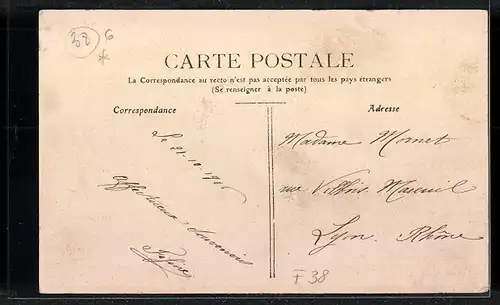 38 6
CARTE POSTALE
La Correspondance au recto n'est pas acceptée par tous les pays étrangers
(Se renseigner à la poste)
Correspondance
Adresse
Le 21-10-1906
affectueux Souvenirs
Madame Mornet
rue Mareuil
Lyon. Rhône
F 38